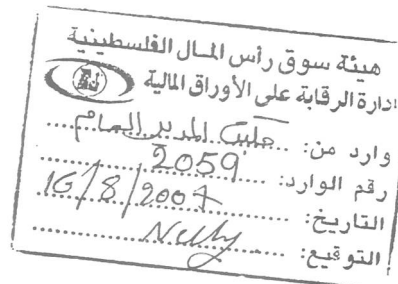 هيئة سوق رأس المال الفلسطينية
ادارة الرقابة على الأوراق المالية
وارد من: ... المدير العام
رقم الوارد: 2059
التاريخ: 16/8/2007
التوقيع: